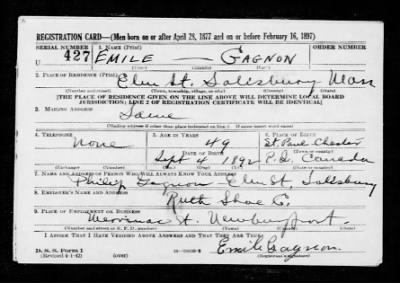 REGISTRATION CARD—(Men born on or after April 28, 1877 and on or before February 16, 1897)
SERIAL NUMBER 1. NAME (Print) ORDER NUMBER
U 427 EMILE — GAGNON
(First) (Middle) (Last)
2. PLACE OF RESIDENCE (Print)
Elm St. Salisbury Mass
(Number and street) (Town, township, village, or city) (County) (State)
[THE PLACE OF RESIDENCE GIVEN ON THE LINE ABOVE WILL DETERMINE LOCAL BOARD
JURISDICTION; LINE 2 OF REGISTRATION CERTIFICATE WILL BE IDENTICAL]
3. MAILING ADDRESS
Same
(Mailing address if other than place indicated on line 2. If same insert word same)
4. TELEPHONE 5. AGE IN YEARS 6. PLACE OF BIRTH
None 49 St. Paul Chester
DATE OF BIRTH (Town or county)
Sept 4 1892 P.Q. Canada
(Exchange) (Number) (Mo.) (Day) (Yr.) (State or country)
7. NAME AND ADDRESS OF PERSON WHO WILL ALWAYS KNOW YOUR ADDRESS
Philip Gagnon — Elm St. Salisbury
8. EMPLOYER'S NAME AND ADDRESS
Ruth Shoe C.
9. PLACE OF EMPLOYMENT OR BUSINESS
Merrimac St. Newburyport.
(Number and street or R. F. D. number) (Town) (County) (State)
I AFFIRM THAT I HAVE VERIFIED ABOVE ANSWERS AND THAT THEY ARE TRUE.
D. S. S. Form 1
(Revised 4-1-42) (over)
Emile Gagnon.
(Registrant's signature)